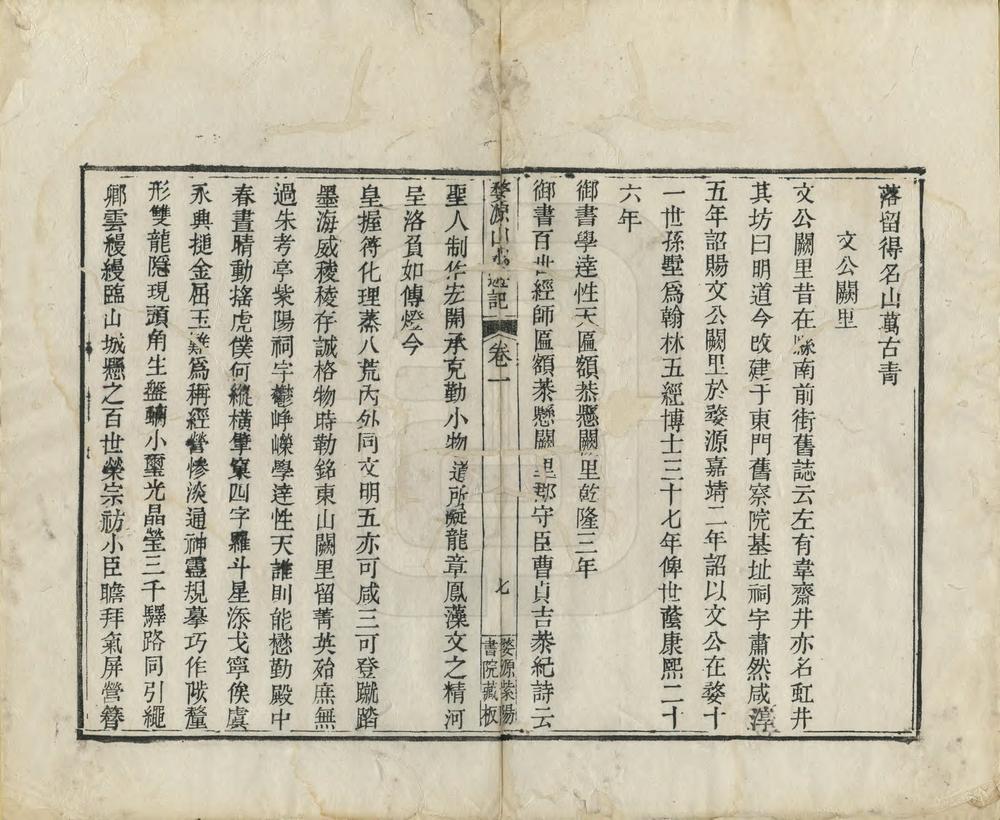 落留得名山萬古青
文公闕里
文公闕里昔在縣南前街舊誌云左有韋齋井亦名虹井
其坊曰明道今改建于東門舊察院基址祠宇肅然咸淳
五年詔賜文公闕里於婺源嘉靖二年詔以文公在婺十
一世孫墅爲翰林五經博士三十七年俾世蔭康熙二十
六年
御書學達性天匾額恭懸闕里乾隆三年
御書百世經師匾額恭懸闕里郡守臣曹貞吉恭紀詩云
婺源山水遊記 卷一 七 婺源紫陽書院藏板
聖人制作宏開承克勤小物道所凝龍章鳳藻文之精河
呈洛負如傳燈今
皇握符化理蒸八荒內外同文明五亦可咸三可登蹴踏
墨海威稜稜存誠格物時勒銘東山闕里留菁英殆庶無
過朱考亭紫陽祠宇鬱崢嶸學達性天誰則能懋勤殿中
春晝晴動搖虎僕何縱橫擘窠四字羅斗星添戈寧俟虞
永興搥金屈玉難爲稱經營慘淡通神靈規摹巧作陟釐
形雙龍隱現頭角生盤螭小璽光晶瑩三千驛路同引繩
鄉雲縵縵臨山城懸之百世榮宗祊小臣瞻拜氣屏營簪